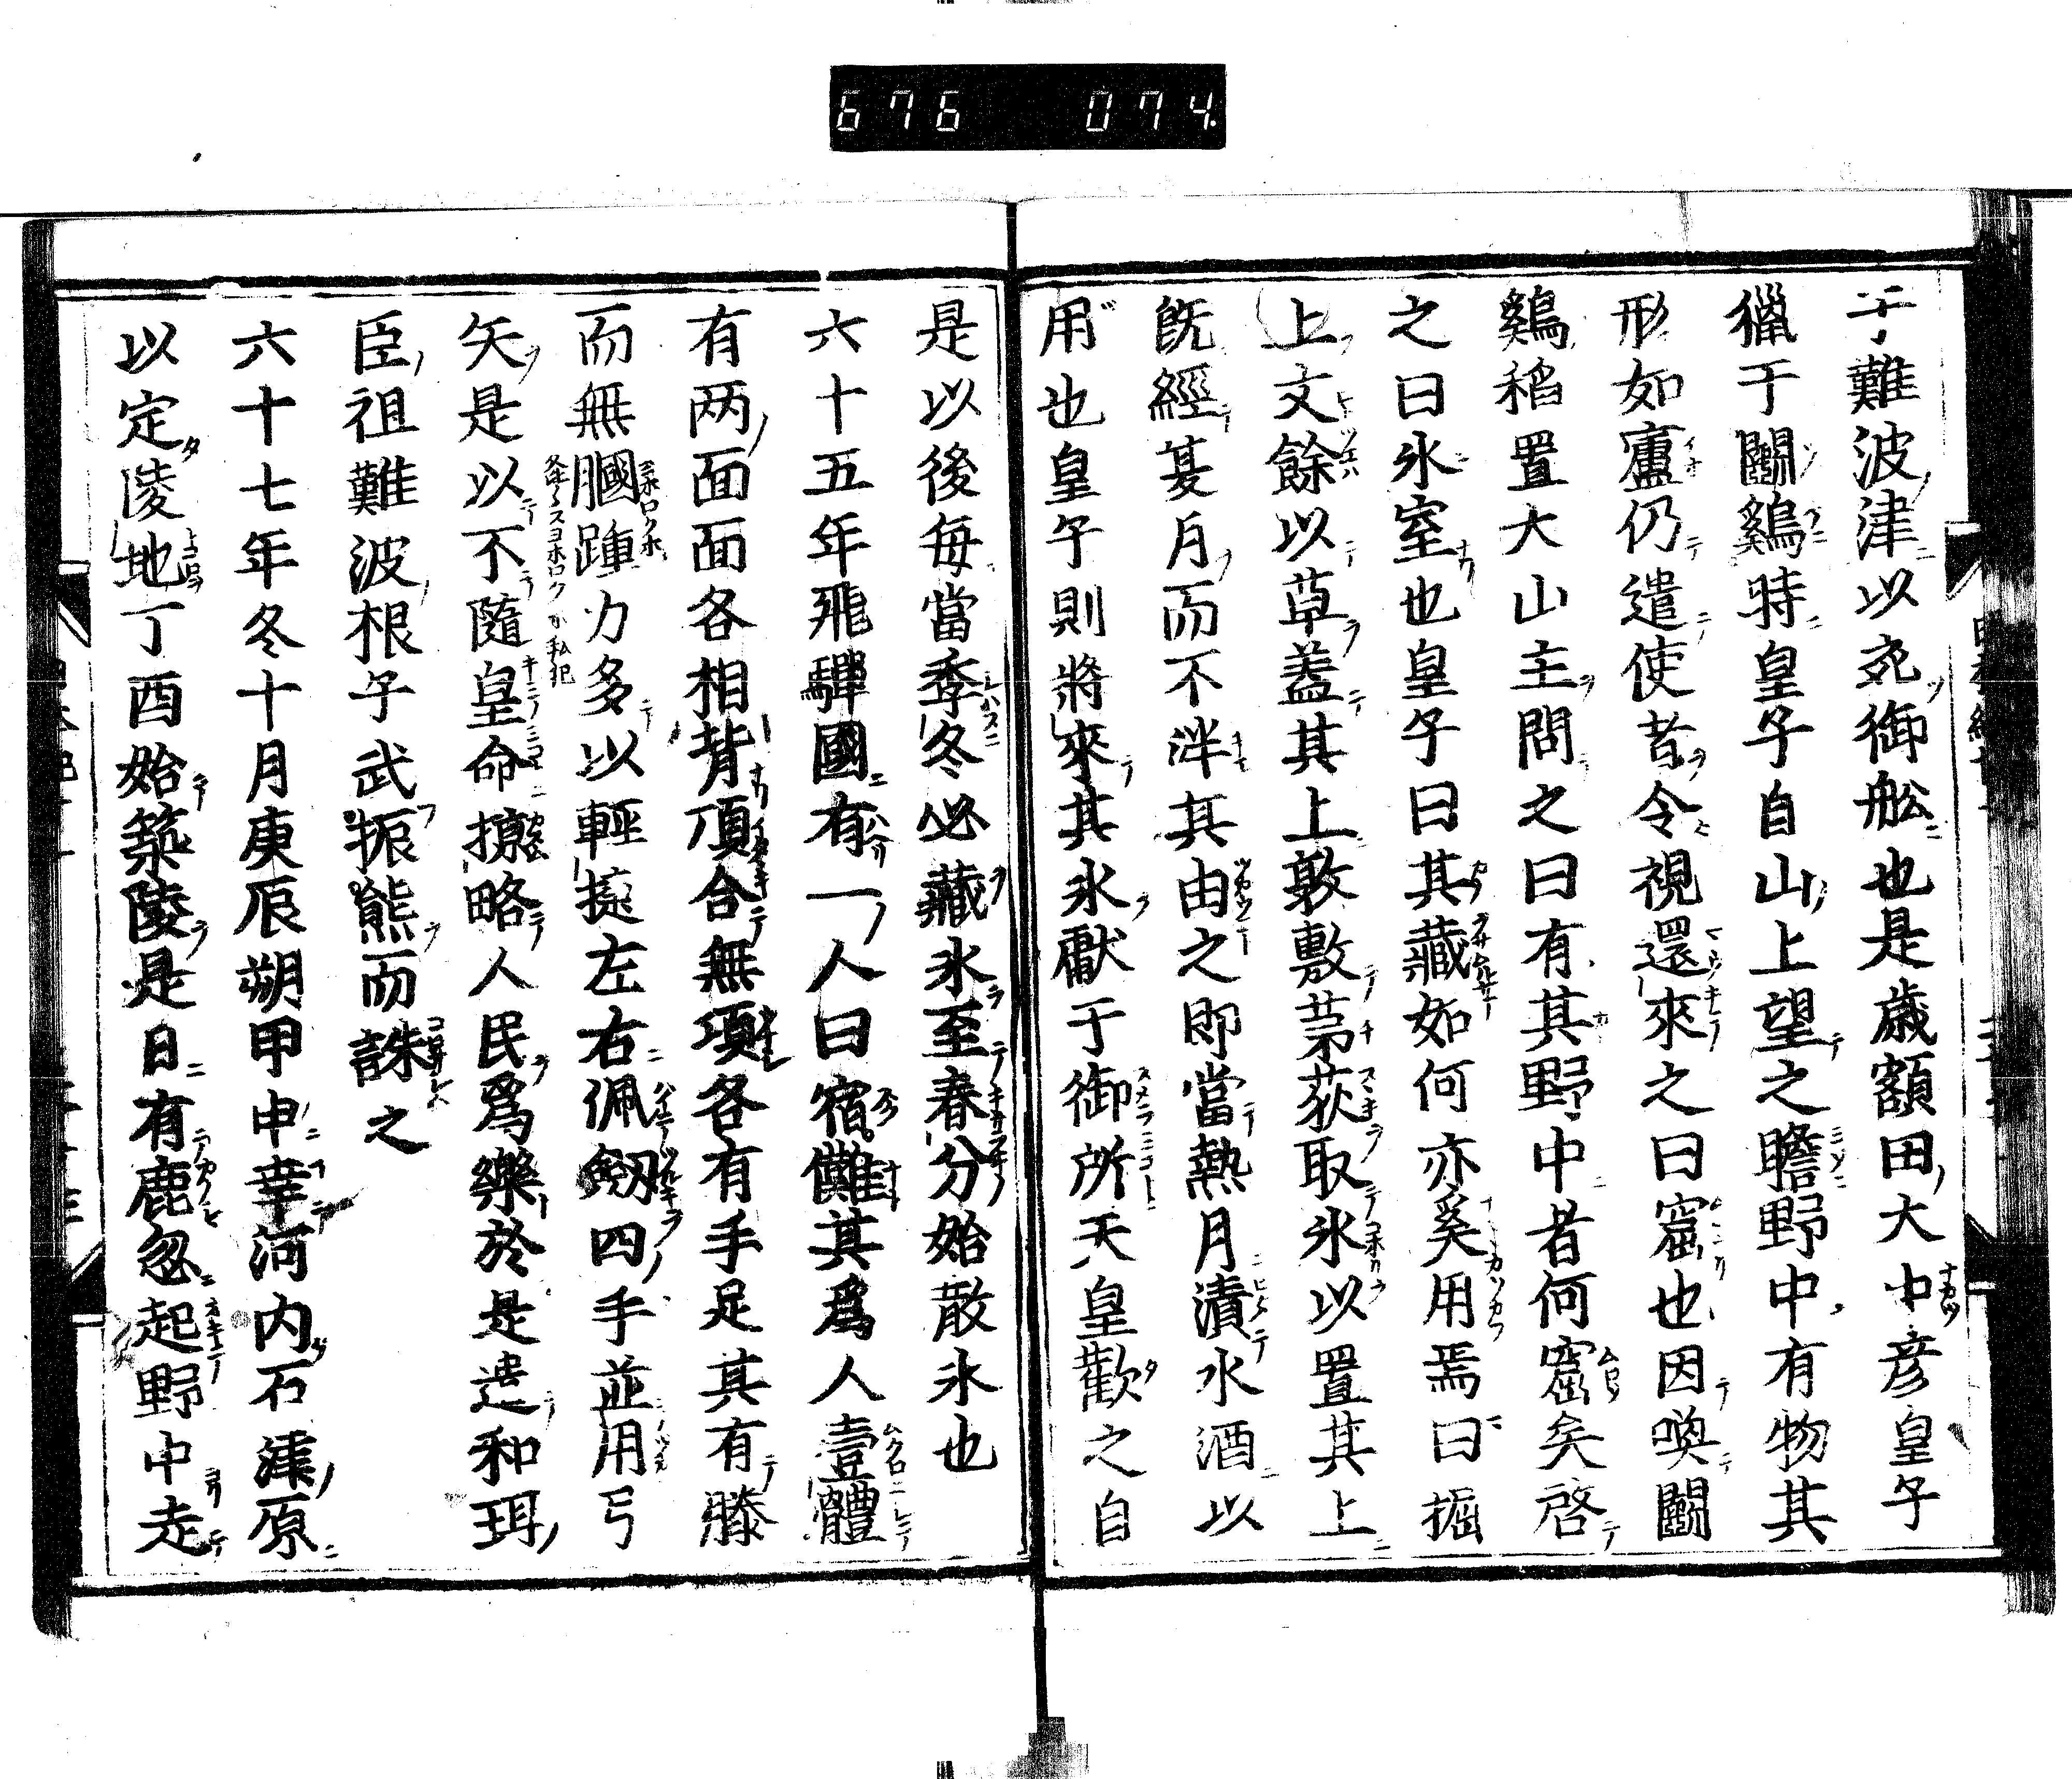 676 074
于難波津以充御舩也是歳額田大中彦皇子
獵于鬭鷄時皇子自山上望之瞻野中有物其
形如廬仍遣使者令視還來之曰窟也因喚鬭
鷄稻置大山主問之曰有其野中者何窟矣啓
之曰氷室也皇子曰其藏如何亦奚用焉曰掘
上丈餘以草盖其上敦敷茅荻取氷以置其上
旣經夏月而不泮其由之即當熱月漬水酒以
用也皇子則將來其氷獻于御所天皇歡之自
是以後毎當季冬必藏氷至春分始散氷也
六十五年飛驒國有一人曰宿儺其爲人壹體
有两面面各相背頂合無項各有手足其有膝
而無膕踵力多以輕捷左右佩劔四手並用弓
矢是以不隨皇命掠略人民爲樂於是遣和珥
臣祖難波根子武振熊而誅之
六十七年冬十月庚辰朔甲申幸河内石津原
以定陵地丁酉始築陵是日有鹿忽起野中走